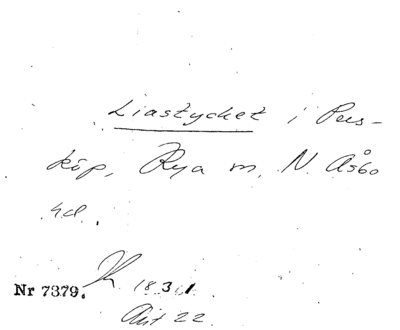 Liastycket i Pers-
köp, Rya m, N. Åsbo
hd.
Nr 7379. K 18 3/1
Akt 22.